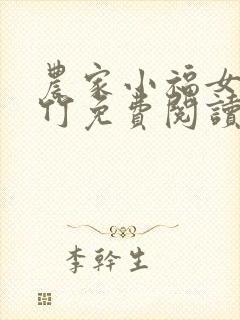 農家小福女
竹免費閱讀
李幹生